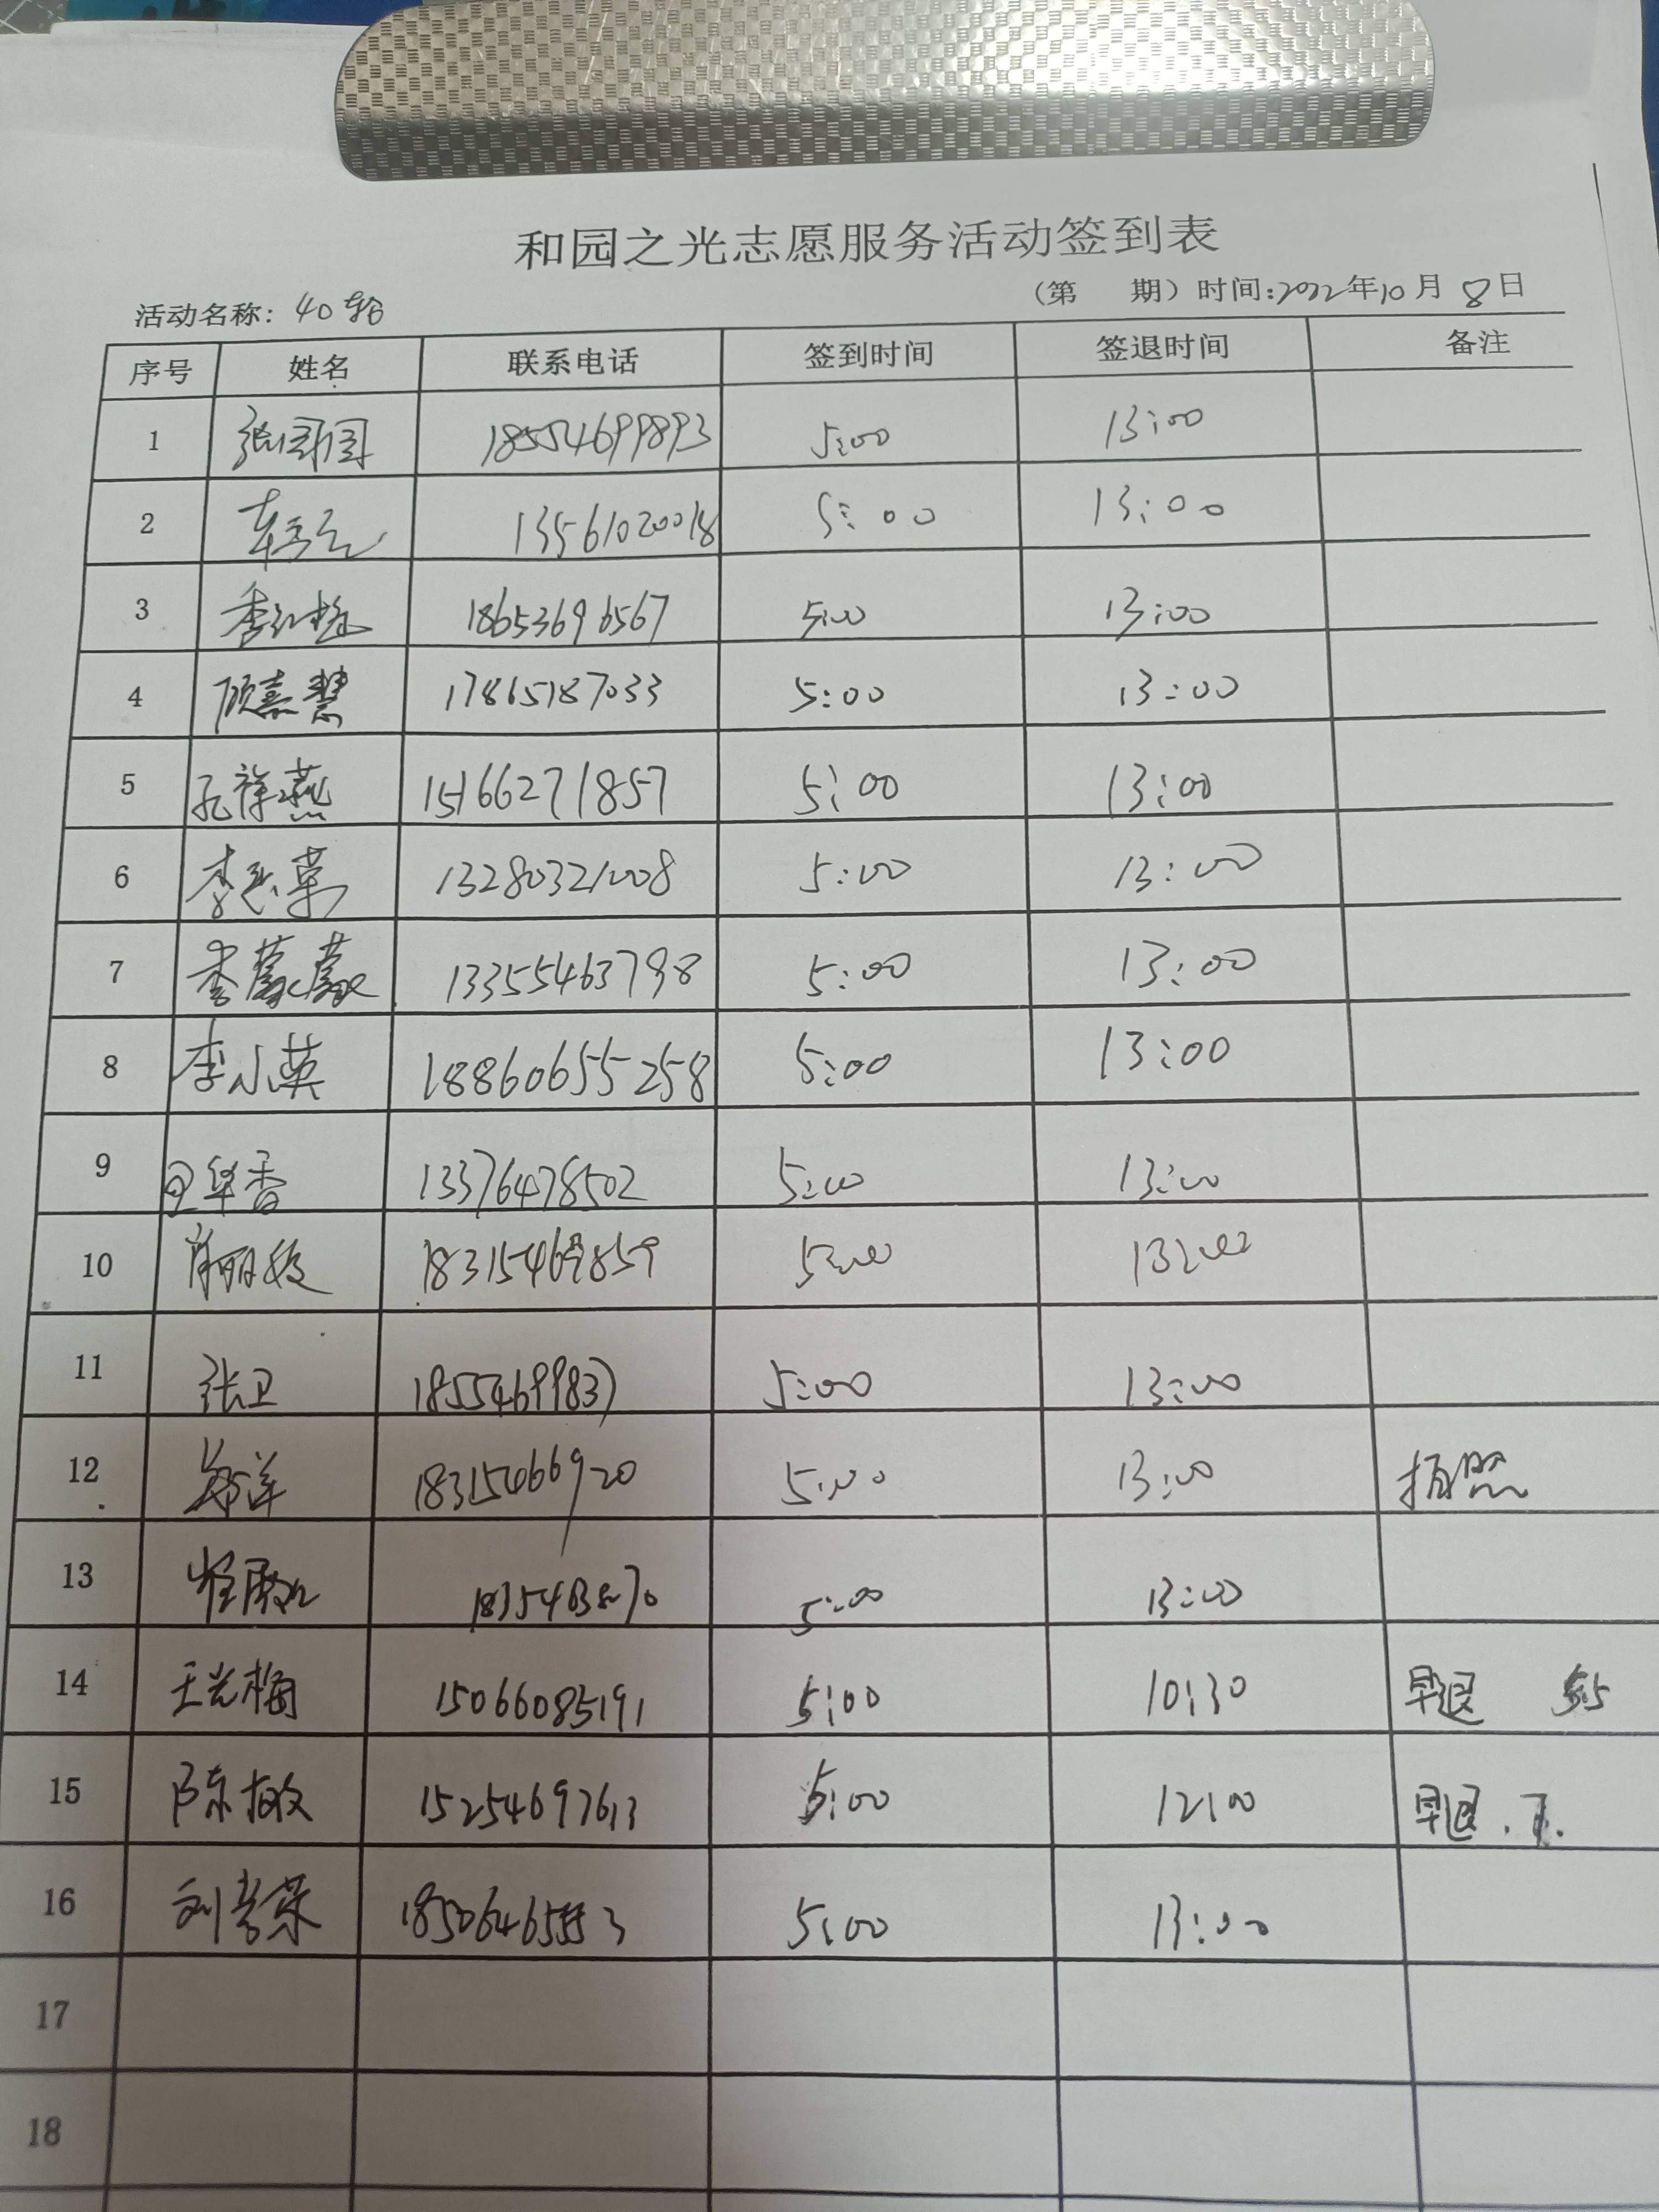 和园之光志愿服务活动签到表
活动名称: 40轮 (第 期) 时间:2022年10月8日
序号 姓名 联系电话 签到时间 签退时间 备注
1 18554699893 5:00 13:00
2 13561020018 5:00 13:00
3 季红梅 18653696567 5:00 13:00
4 顾嘉慧 17865187033 5:00 13:00
5 孔祥燕 15166271857 5:00 13:00
6 13280321008 5:00 13:00
7 季蒙蒙 13355463798 5:00 13:00
8 李小英 18860655258 5:00 13:00
9 13376478502 5:00 13:00
10 肖丽姣 18315469859 5:00 13:00
11 张卫 18554699837 5:00 13:00
12 郑洋 18315466920 5:00 13:00 拍照
13 5:00 13:00
14 王光梅 15066085191 5:00 10:30 早退
15 陈敏 15254697613 5:00 12:00 早退
16 5:00 13:00
17
18